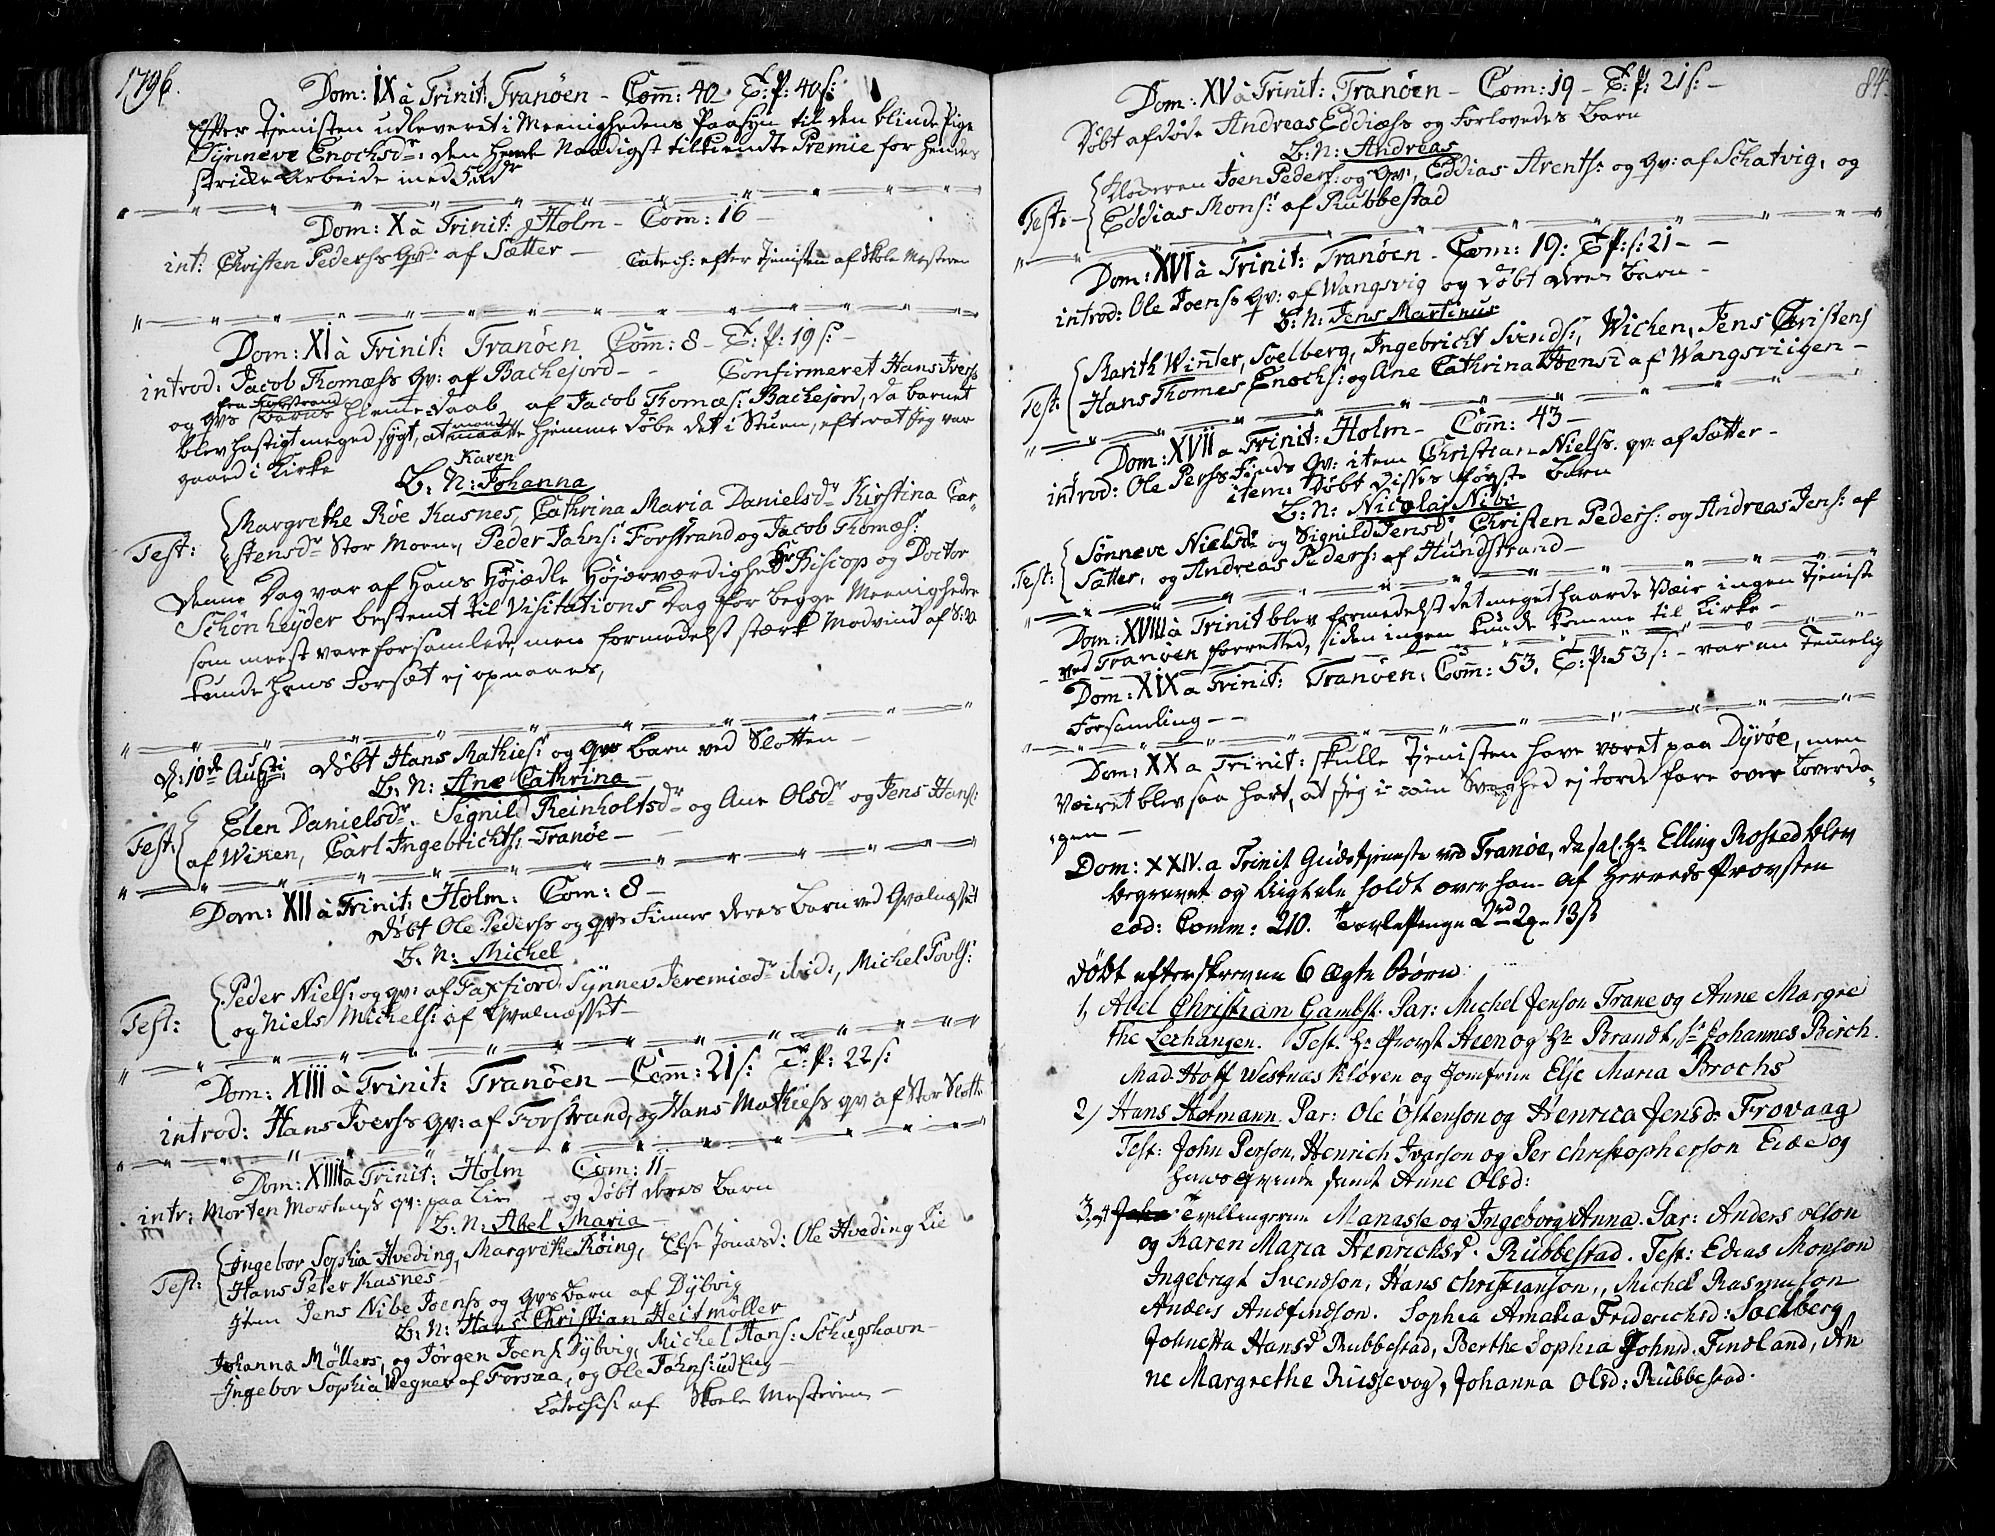 1796.
Dom: IX à Trinit: Tranöen - Com̄: 40. T: P: 40 s:
Efter Tjenisten udleveret i Meenighedens Paasyn til den blinde Pige
Synneve Enochsdr: den hende Naadigst tilkiendte Premie for hendes
strikke Arbeide med 5 rdr
Dom: X à Trinit: Holm - Com̄: 16 -
int: Christen Pederss Qv: af Sætter - Catech: efter Tjenisten af Skole Mesteren
Dom: XI à Trinit: Tranöen Com̄: 8 - T: P: 19 s: -
introd: Jacob Thomæss Qv: af Bachejord - - Confirmeret Hans Iverss
og Qvs fra Forstrand Barns hjemme-daab af Jacob Thomæs: Bachejord, da barnet
blev hastigt meged sygt, at maatte hjemme döbe det i Stuen, efterat Jeg var
gaaed i Kirke
Karen
B: N: Johanna
Test: Margrethe Röe Kasnes, Cathrina Maria Danielsdr Kirstina Car-
stensdr Stor Moen, Peder Jahns: Forstrand og Jacob Thomæs:
Denne Dag var af Hans Höjædle Höjærværdighed Hr Biscop og Doctor
Schönheyder bestemt til Visitations Dag for begge Meenighederne
som meest vare forsamlede, men formedelst stærk Modvind af S:V
kunde hans Forsæt ej opnaaes,
D: 10de Augsti: döbt Hans Mathies: og Qvs Barn ved Slotten -
B: N: Ane Cathrina -
Test: Elen Danielsdr. Segnild Reinholtsdr og Ane Olsdr og Jens Hans:
af Wiken, Carl Ingebrichts: Tranöe -
Dom: XII à Trinit: Holm: Com: 8 -
döbt Ole Pederss og Qvs Finner deres Barn ved Qvalnæsset
B: N: Michel
Test: Peder Niels: og qv: af Faxfiord. Synnev Jeremiædr ibid:, Michel Povls:
og Niels Michels: af Qvalnæsset -
Dom: XIII à Trinit: Tranöen - Com̄: 21 s: T: P: 22 s:
introd: Hans Iverss Qv: af Forstrand, og Hans Mathiess qv: af Stor Slott
Dom: XIIII à Trinit: Holm Com: 11 -
intr: Morten Mortenss qv: paa Lie - og döbt deres Barn
B: N: Abel Maria -
Test: Ingebor Sophia Hveding, Margrethe Röing, Else Jonæsd: Ole Hveding Lie
Hans Peter Kasnes -
Item Jens Nibe Joenss og Qvs barn af Dybvig
B: N: Hans Christian Heitmöller
Johanna Möllers, og Jörgen Joens: Dybvig, Michel Hans: Schugshavn -
Ingebor Sophia Wegner af Forsaa, og Ole Jahns: ud Eng -
Catechis: af Skoele Mesteren -
84.
Dom: XV à Trinit: Tranöen - Com: 19 - T: P: 21 s: -
Döbt afdöde Andreas Eddiæss og Forlovedes Barn
B: N: Andreas
Test: - Kloderen Joen Peders: og Qv:, Eddias Arents: og Qv: af Schatvig, og
Eddias Mons: af Rubbestad
Dom: XVI à Trinit: Tranöen - Com: 19: T: P: s: 21 - -
introd: Ole Joenss Qv: af Wangsvig og döbt deres Barn -
B: N: Jens Martinus
Test: Marith Winter, Soelberg, Ingebricht Svends:, Wicken, Jens Christens
Hans Thomes Enochs: og Ane Cathrina Hansd af Wangsviigen -
Dom: XVII a Trinit: Holm - Com̄: 43 -
introd: Ole Perss Finds Qv: item Christian Nielss. qv: af Sætter -
item: Döbt Disses sidste Barn
B: N: Nicolai Nibe
Test: Sönneve Nielsdr og Signild Jensdr, Christen Peders: og Andreas Jens: af
Sætter, og Andreas Peders: af Hundstrand -
Dom: XVIII à Trinit blev formedelst det meget haarde Væir ingen Tjeniste
ved Tranöen forretted, siden ingen kunde komme til Kirke -
Dom: XIX a Trinit: Tranöen, Com̄: 53, T: P: 53 s: - var en temmelig
Forsamling - -
Dom: XX a Trinit: skulle Tjenisten have været paa Dyröe, men
Væiret blev saa hart, at Jeg i min Svaghed ej torde fare over Soverda-
gen -
Dom: XXIV. a Trinit Gudstjeneste ved Tranöe, da sal: Hr Elling Rosted blev
begravet og Liigtale holdt over ham af Herreds Provsten
eod: Comm: 210. Tavlepenge 2rd 2q 13 s
Döbt efterskrevne 6 ægte Börn
1, Abel Christian Gambst. Par: Michel Jenson Trane og Anne Margre
the Lexhangen. Test: Hr Provst Heen og Hr Brandt, Sr Johannes Birch.
Mad. Hoff Westnæs Klöven og Jomfrue Elje Maria Brochs
2) Hans Hofmann. Par: Ole Ostenson og Henrica Jensd: Frovaag
Test: John Person, Henrich Ivarson og Per Christopherson Eide og
hans qvinde samt Anne Olsd:
3, 4 Tvillingerne Manasse og Ingeborg Anna. Par: Anders Olson
og Karen Maria Henrichsd. Rubbestad. Test: Edias Monson
Ingebrigt Svendson, Hans Christianson, Michel Rasmuson
Anders Andfindson. Sophia Amalia Friderichsd: Soelberg
Johnetta Hansd Rubbestad, Berthe Sophia Johnsd. Findland, An
ne Margrethe Russevog, Johanna Olsd: Rubbestad.